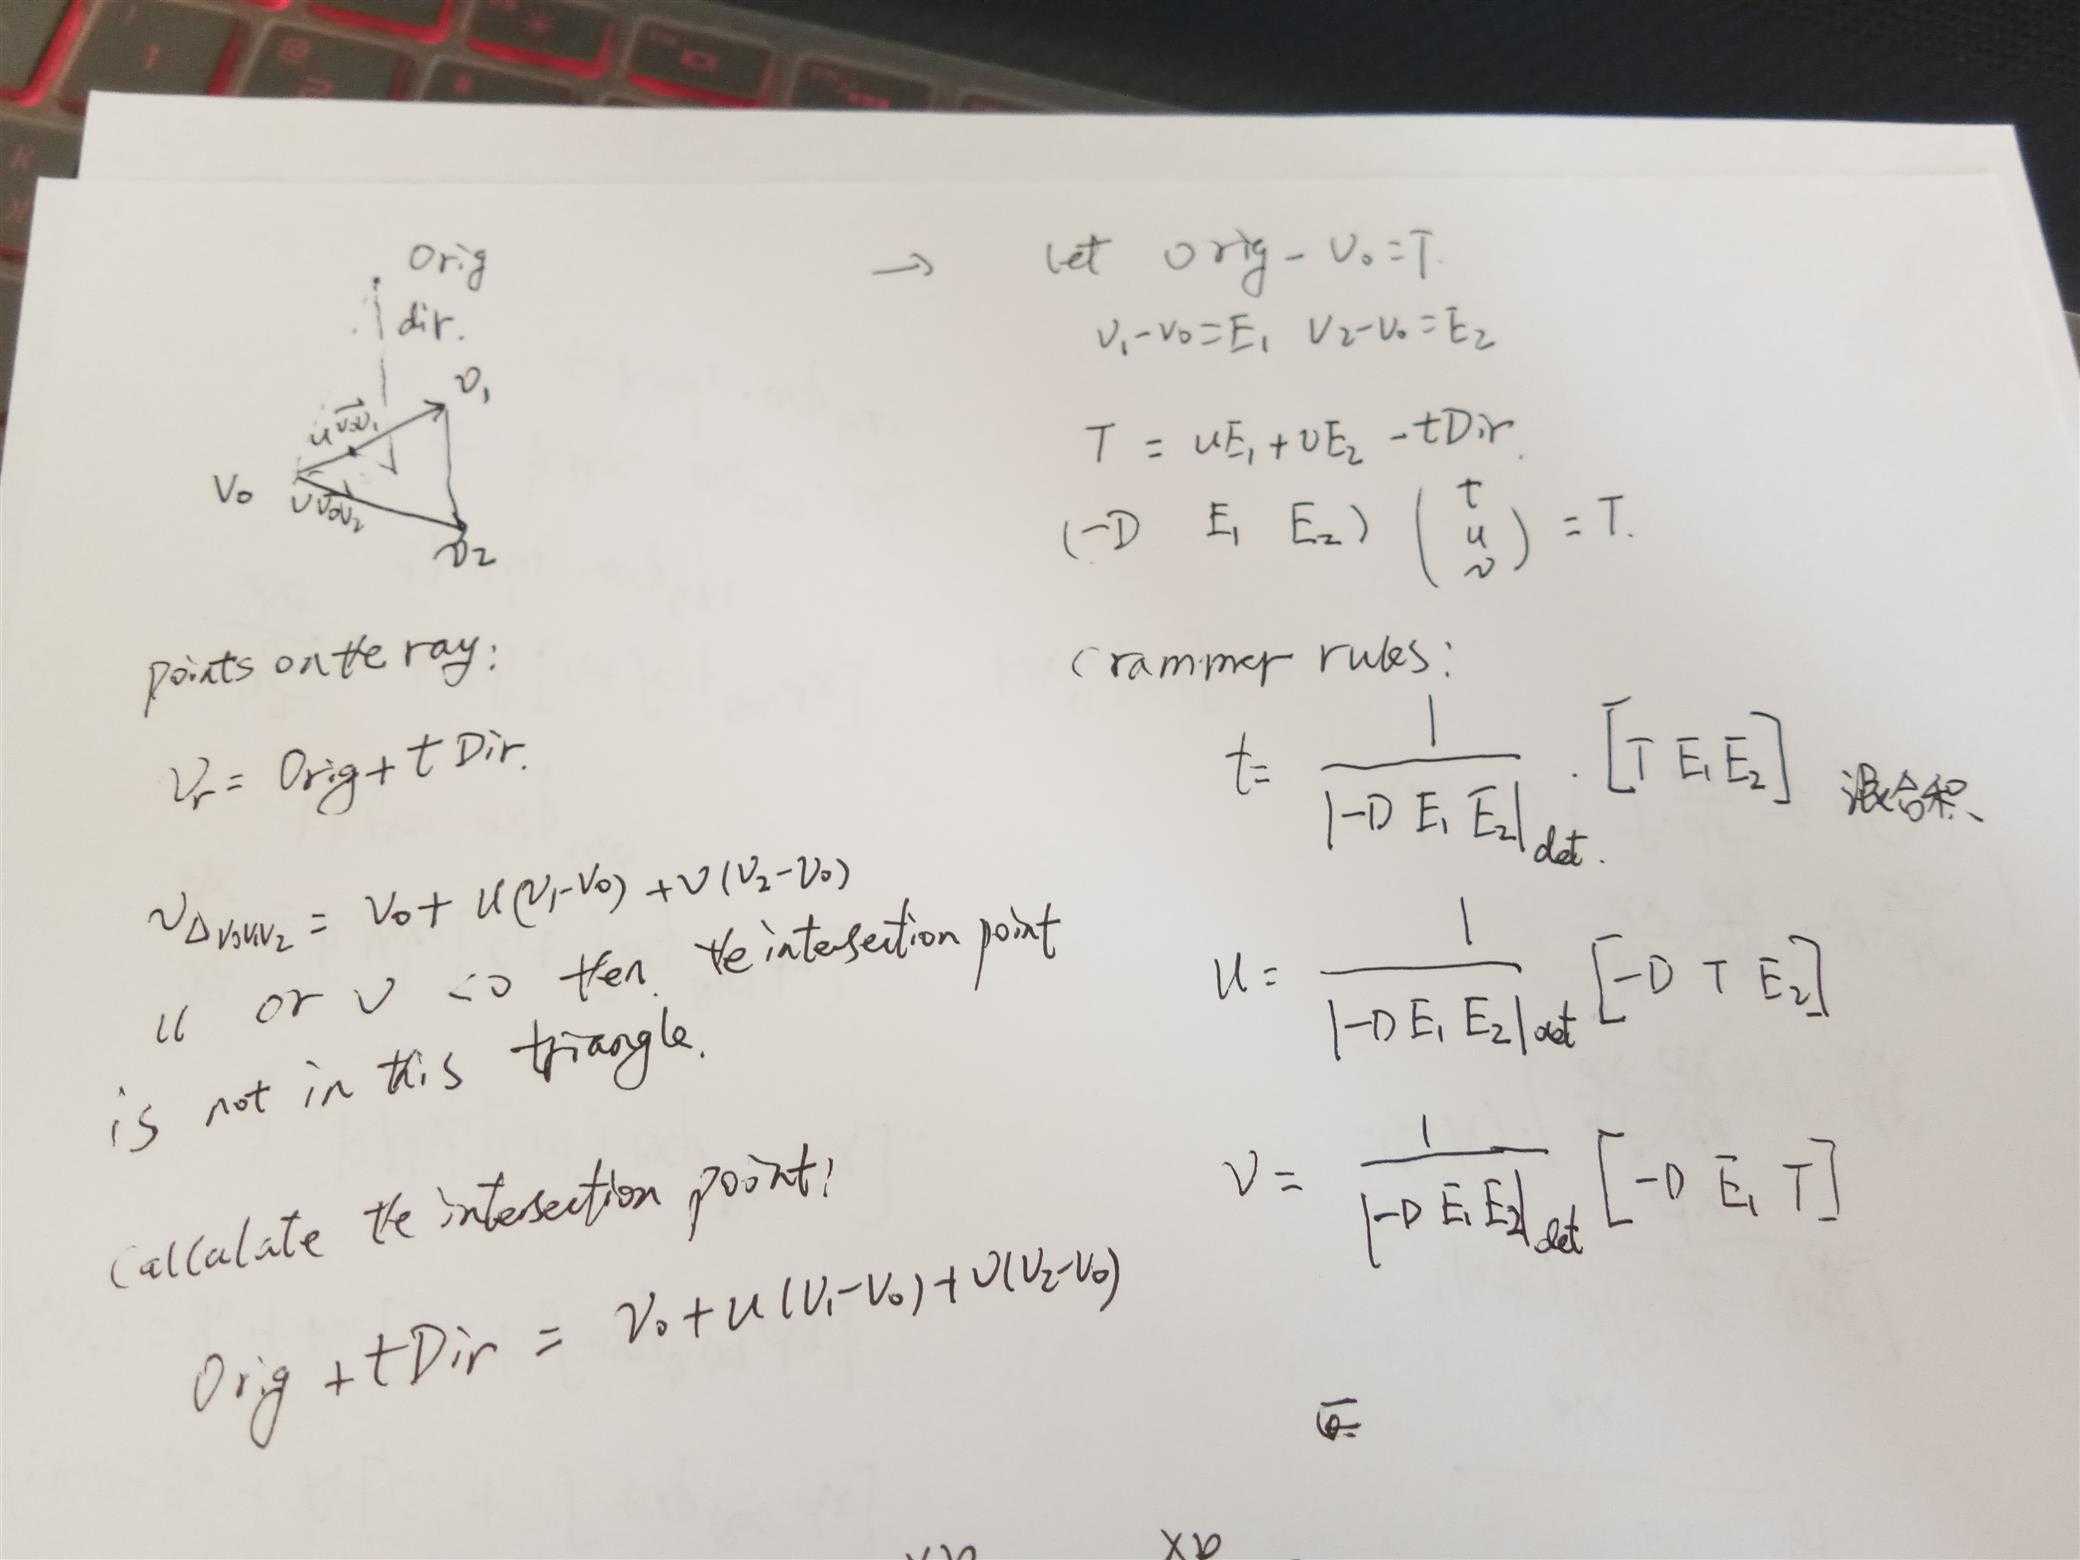 Orig
dir.
v₁
u v₀v₁
V₀
v v₀v₂
v₂
points on the ray:
Vr = Orig + t Dir.
v△v₀v₁v₂ = V₀ + u(v₁-v₀) + v(v₂-v₀)
u or v <0 then the intersection point
is not in this triangle.
Calculate the intersection point:
Orig + tDir = V₀ + u(V₁-V₀) + v(V₂-V₀)
→ let orig - v₀ = T.
v₁-v₀ = E₁ v₂-v₀ = E₂
T = uE₁ + vE₂ - tDir.
(-D E₁ E₂) (t u v) = T.
Crammer rules:
t = 1 / |-D E₁ E₂|det. · [T E₁ E₂] 混合积、
u = 1 / |-D E₁ E₂|det [-D T E₂]
v = 1 / |-D E₁ E₂|det [-D E₁ T]